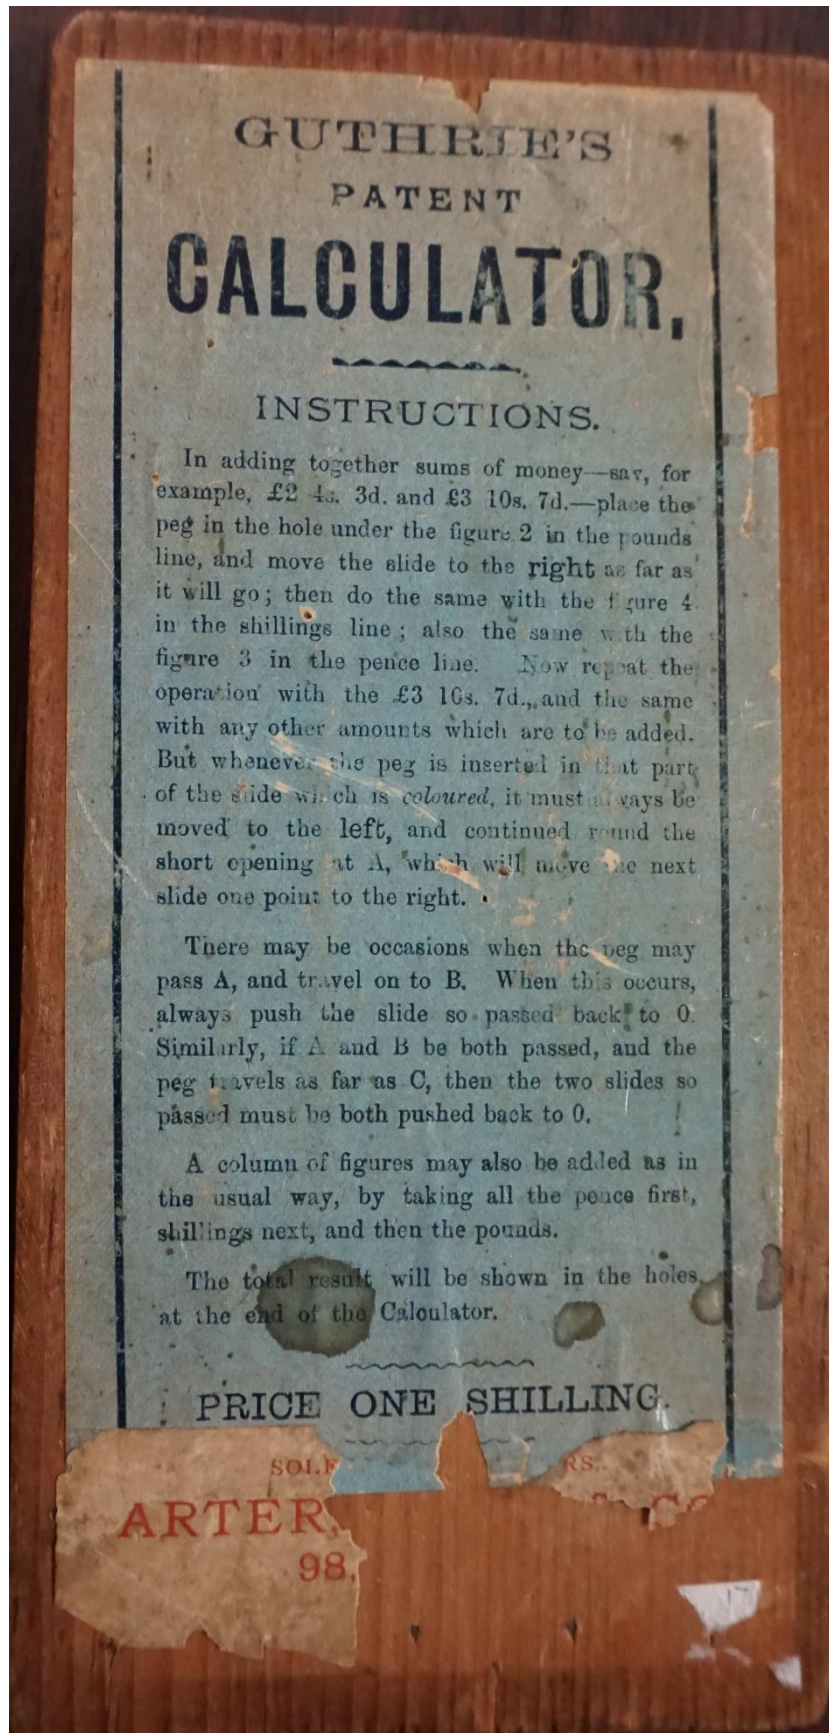 GUTHRIE'S
PATENT
CALCULATOR,
INSTRUCTIONS.
In adding together sums of money—say, for
example, £2 4s. 3d. and £3 10s. 7d.—place the
peg in the hole under the figure 2 in the pounds
line, and move the slide to the right as far as
it will go; then do the same with the figure 4
in the shillings line; also the same with the
figure 3 in the pence line. Now repeat the
operation with the £3 10s. 7d., and the same
with any other amounts which are to be added.
But whenever the peg is inserted in that part
of the slide which is coloured, it must always be
moved to the left, and continued round the
short opening at A, which will move the next
slide one point to the right.
There may be occasions when the peg may
pass A, and travel on to B. When this occurs,
always push the slide so passed back to 0.
Similarly, if A and B be both passed, and the
peg travels as far as C, then the two slides so
passed must be both pushed back to 0.
A column of figures may also be added as in
the usual way, by taking all the pence first,
shillings next, and then the pounds.
The total result will be shown in the holes
at the end of the Calculator.
PRICE ONE SHILLING.
SOLE RS.
ARTER,
98,
17